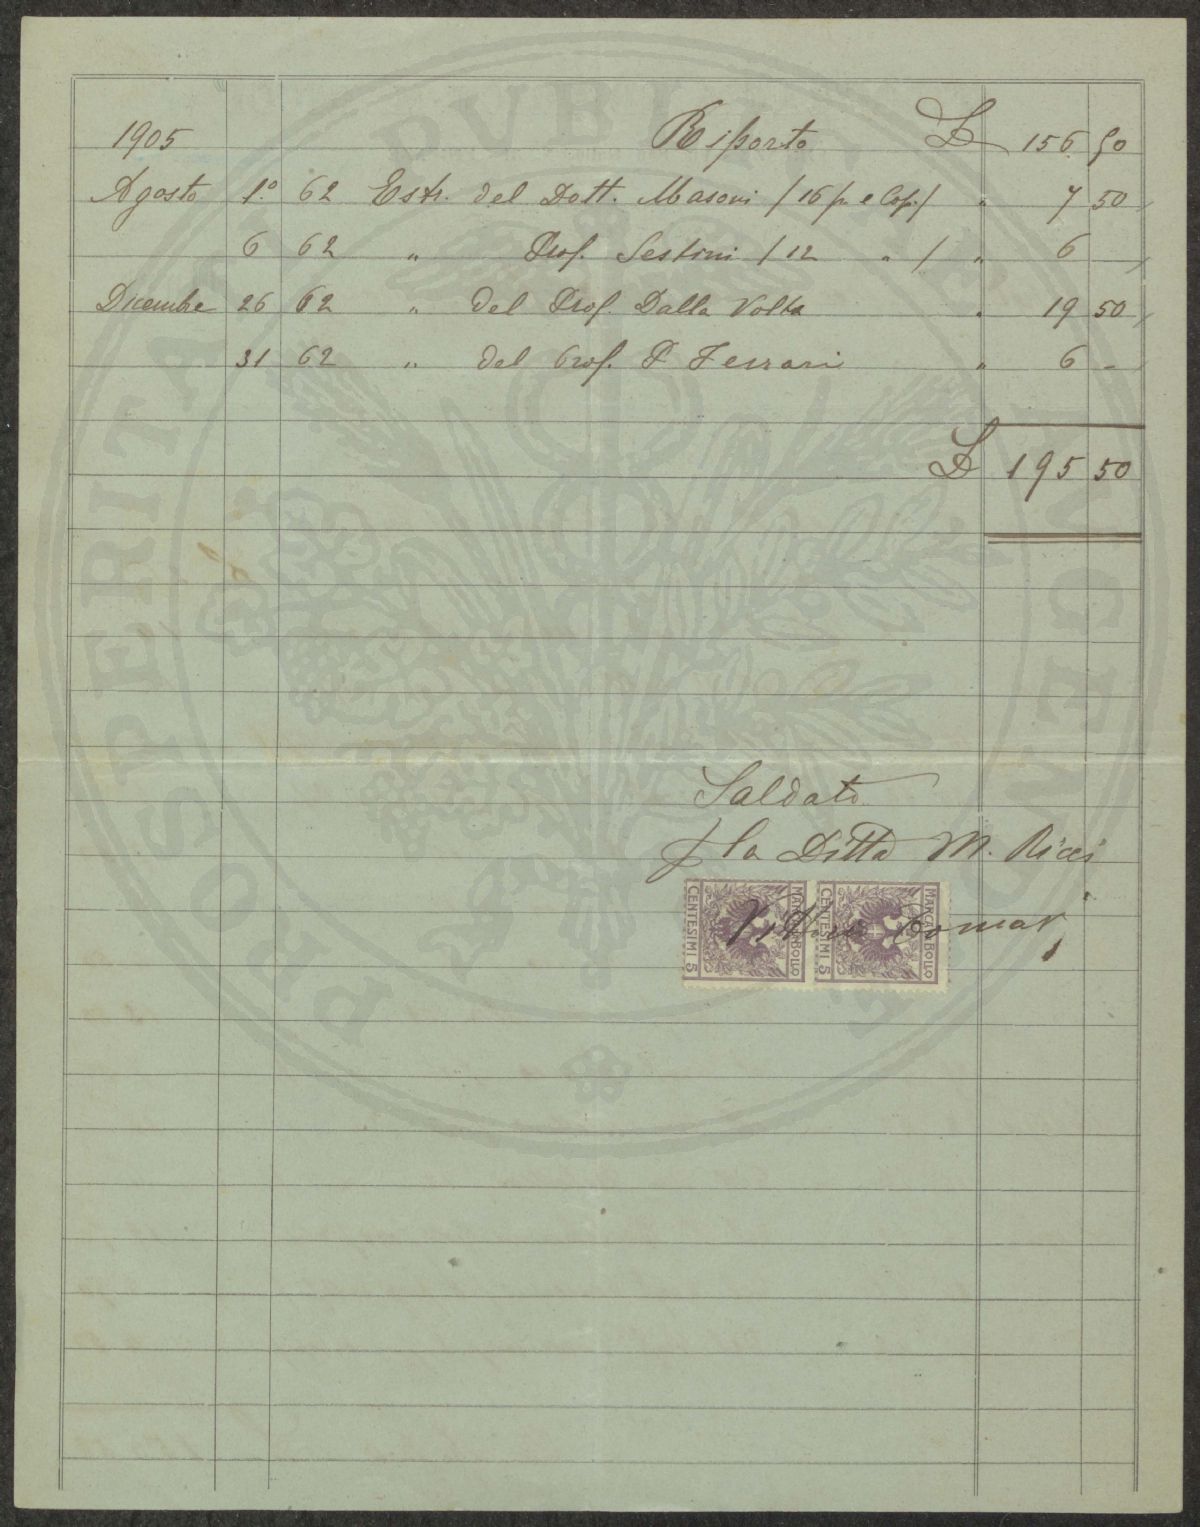 1905 Riporto L 156 50
Agosto 1.° 62 Estr. del Dott. Masoni / 16 p. e Cop. / " 7 50
6 62 " Prof. Sestini / 12 " / " 6 —
Dicembre 26 62 " del Prof. Dalla Volta " 19 50
31 62 " del Prof. P. Ferrari " 6 -
L 195 50
Saldato
p la Ditta M. Ricci
Vittorio
MARCA DA BOLLO
CENTESIMI 5
MARCA DA BOLLO
CENTESIMI 5
PROSPERITAS